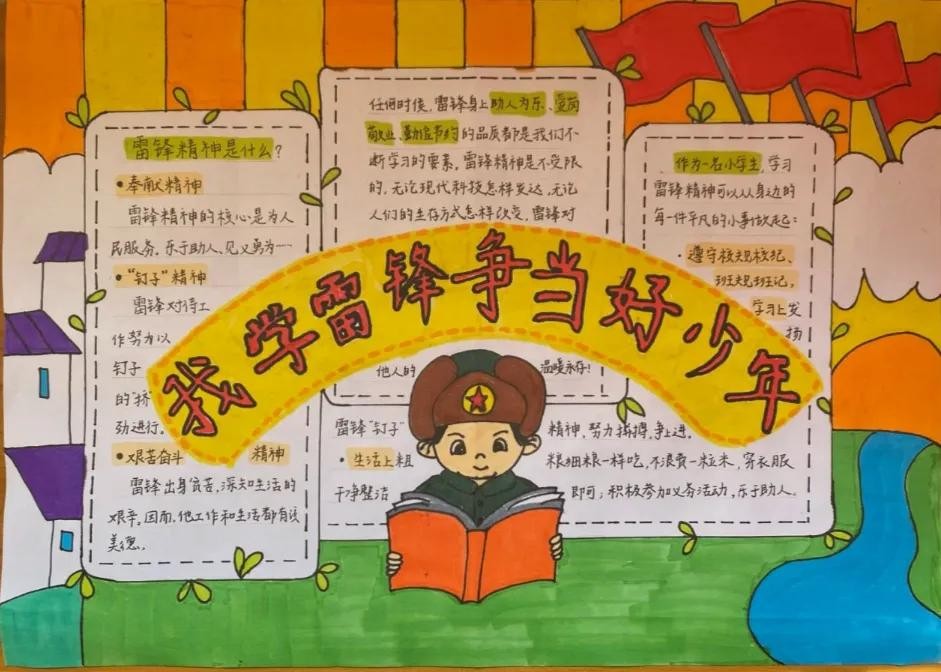 我学雷锋争当好少年
雷锋精神是什么?
•奉献精神
雷锋精神的核心是为人
民服务。乐于助人、见义勇为……
•“钉子”精神
雷锋对待工
作努力以
钉子
的“挤
劲进行。
•艰苦奋斗 精神
雷锋出身贫苦,深知生活的
艰辛,因而,他工作和生活都有该
美德。
任何时候,雷锋身上助人为乐、爱岗
敬业、勤俭节约的品质都是我们不
断学习的要素,雷锋精神是不受限
的,无论现代科技怎样发达,无论
人们的生存方式怎样改变,雷锋对
他人的 温暖永存!
作为一名小学生,学习
雷锋精神可以从身边的
每一件平凡的小事做起:
·遵守校规校纪、
班规班记,
学习上发
扬
雷锋“钉子” 精神,努力拼搏,争上进。
•生活上粗 粮细粮一样吃,不浪费一粒米,穿衣服
干净整洁 即可;积极参加义务活动,乐于助人。